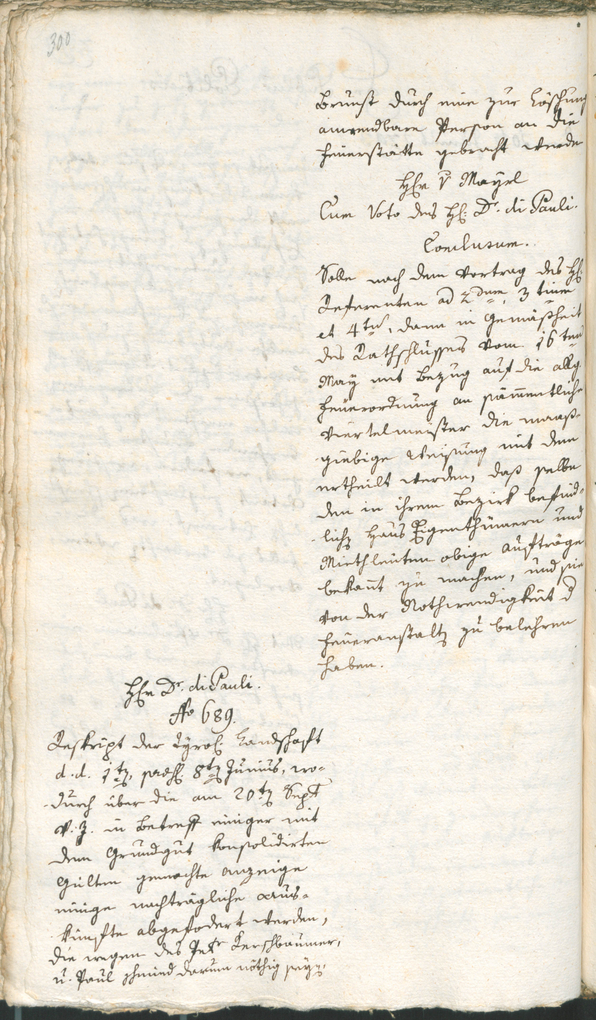 300
Brunst durch eine zur Löschung
anwendbare Person an die
Feuerstätte gebracht werde
Hr v Mayrl
Cum Voto des H: Dr. di Pauli.
Conclusum.
Solle nach dem Vortrag des H:
Referenten ad 2dum, 3tium
et 4tum, dann in Gemäßheit
des Rathschlusses vom 16ten
May mit Bezug auf die allg.
Feuerordnung an sämmentliche
Viertelmeister die maaß-
giebige Weisung mit dem
ertheilt werden, daß selbe
den in ihrem Bezirk befind-
lich Haus Eigenthümern und
Miethleuten obige Aufträge
bekannt zu machen, und sie
von der Nothwendigkeit d
Feueranstalt zu belehren
haben.
Hr Dr. di Pauli.
No 689.
Reskript der Tyrol: Landschaft
d. d. 1t, præs: 8t Junius, wo-
durch über die am 20t Sept
v. J. in Betreff einiger mit
dem Grundgut konsolidirten
Gülten gemachte Anzeige
einige nachträgliche Aus-
künfte abgefodert werden,
die wegen des Kerschbaumer,
u. Paul darum nöthig seye,